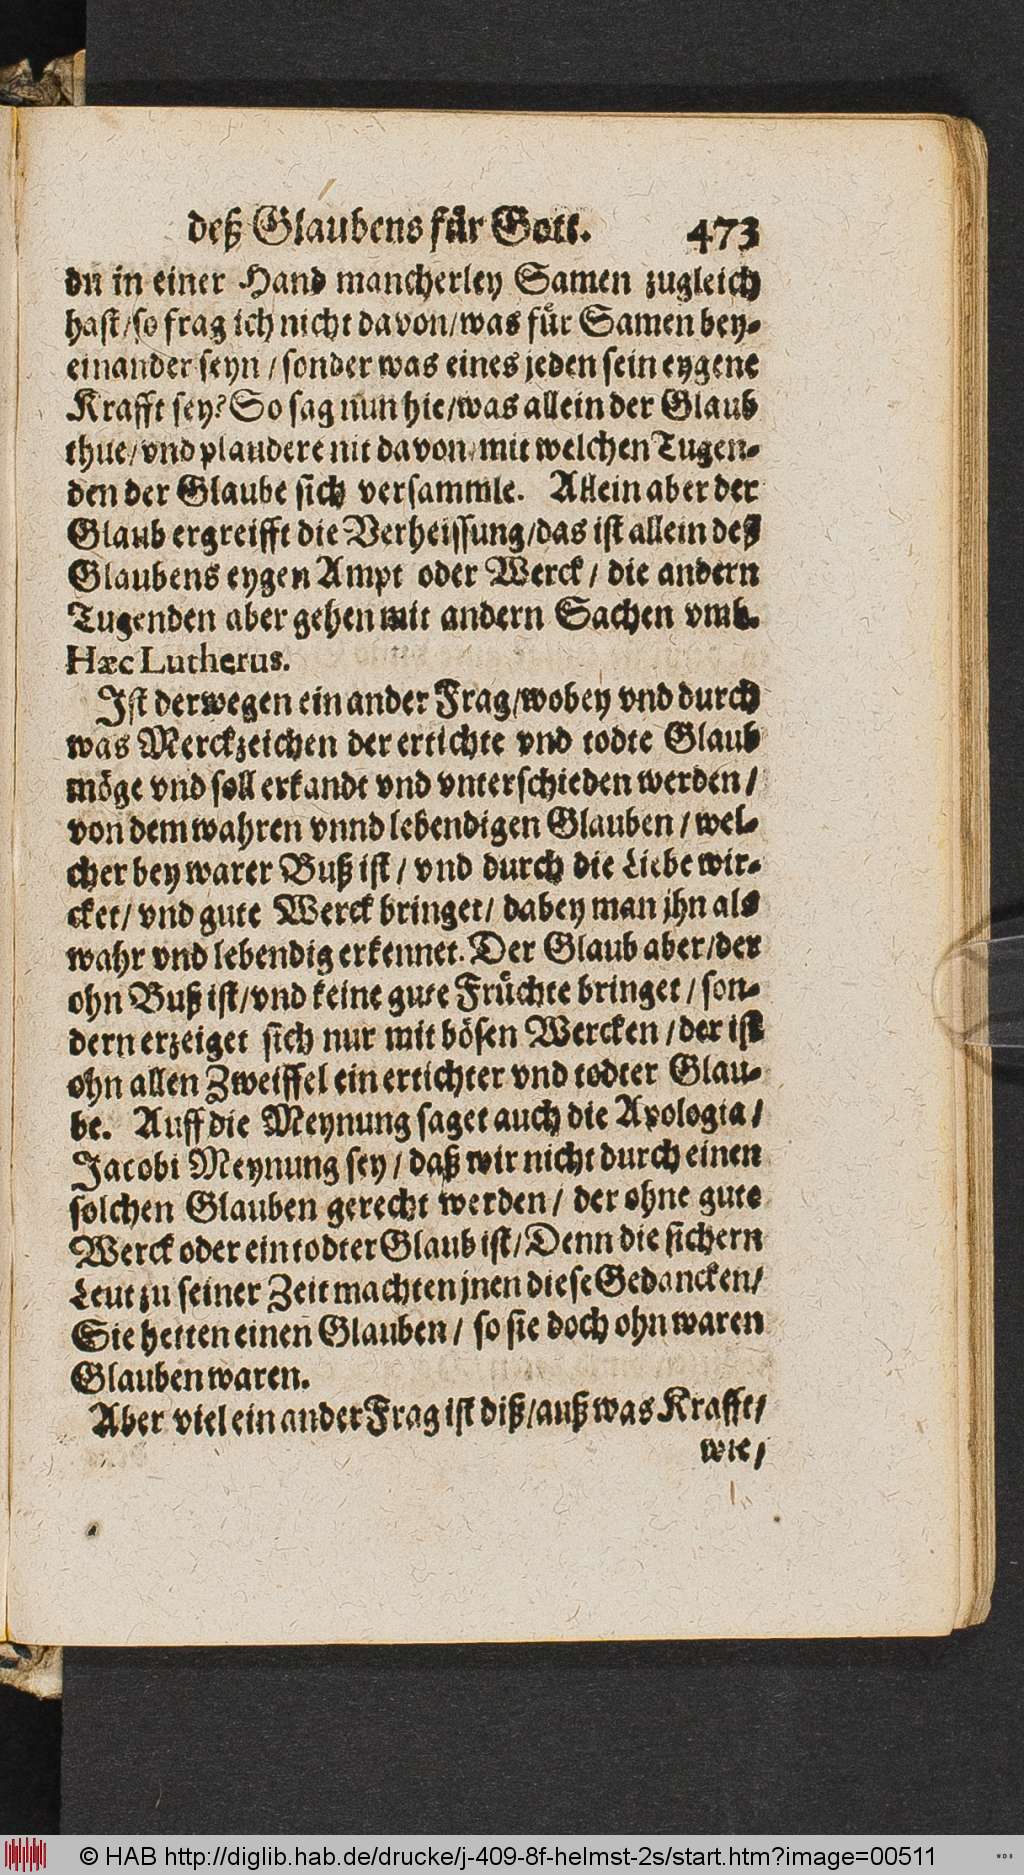 deß Glaubens für Gott. 473
du in einer Hand mancherley Samen zugleich
hast/so frag ich nicht davon/was für Samen bey-
einander seyn/sonder was eines jeden sein eygene
Krafft sey? So sag nun hie/was allein der Glaub
thue/vnd plaudere nit davon/mit welchen Tugen-
den der Glaube sich versammle. Allein aber der
Glaub ergreifft die Verheissung/das ist allein deß
Glaubens eygen Ampt oder Werck/die andern
Tugenden aber gehen mit andern Sachen vmb.
Hæc Lutherus.
Ist derwegen ein ander Frag/wobey vnd durch
was Merckzeichen der ertichte vnd todte Glaub
möge vnd soll erkandt vnd vnterschieden werden/
von dem wahren vnnd lebendigen Glauben/wel-
cher bey warer Buß ist/vnd durch die Liebe wir-
cket/vnd gute Werck bringet/dabey man jhn als
wahr vnd lebendig erkennet. Der Glaub aber/der
ohn Buß ist/vnd keine gute Früchte bringet/son-
dern erzeiget sich nur mit bösen Wercken/der ist
ohn allen Zweiffel ein ertichter vnd todter Glau-
be. Auff die Meynung saget auch die Apologia/
Jacobi Meynung sey/daß wir nicht durch einen
solchen Glauben gerecht werden/der ohne gute
Werck oder ein todter Glaub ist/Denn die sichern
Leut zu seiner Zeit machten jnen diese Gedancken/
Sie hetten einen Glauben/so sie doch ohn waren
Glauben waren.
Aber viel ein ander Frag ist diß/auß was Krafft/
wie/
© HAB http://diglib.hab.de/drucke/j-409-8f-helmst-2s/start.htm?image=00511